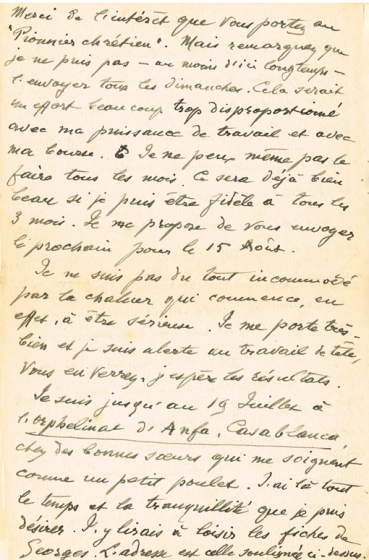 Merci de l'intérêt que vous portez au
"Pionnier chrétien". Mais remarquez que
je ne puis pas - au moins d'ici longtemps -
l'envoyer tous les dimanches. Cela serait
un effort beaucoup trop disproportionné
avec ma puissance de travail et avec
ma bourse. Je ne peux même pas le
faire tous les mois. Ce sera déjà bien
beau si je puis être fidèle à tous les
3 mois. Je me propose de vous envoyer
le prochain pour le 15 Août.
Je ne suis pas du tout incommodé
par la chaleur qui commence, en
effet, à être sérieuse. Je me porte très
bien et je suis alerte au travail de tête,
Vous en verrez, j'espère les résultats.
Je suis jusqu'au 19 Juillet à
l'orphelinat d'Anfa, Casablanca,
chez des bonnes sœurs qui me soignent
comme un petit poulet. J'ai là tout
le temps et la tranquillité que je puis
désirer. J'y lirais à loisir les fiches de
Georges. L'adresse est celle soulignée ci-dessus.